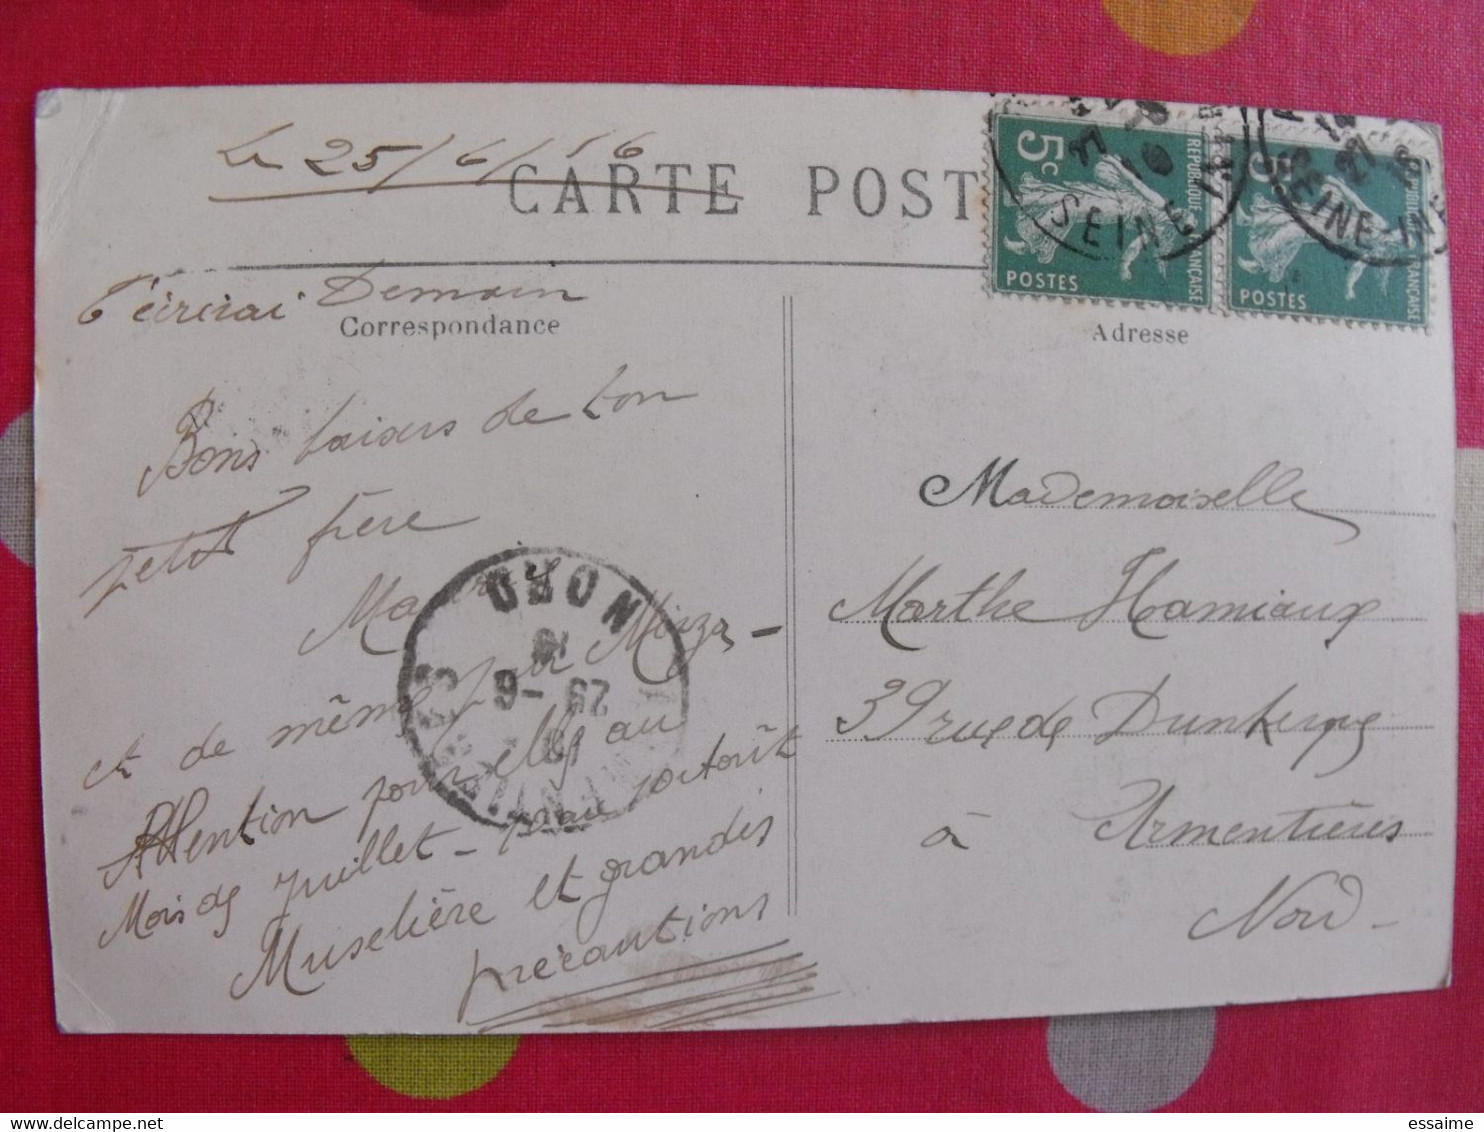 Le 25/6/16
CARTE POST
T'écrirai Demain
Correspondance
Bons baisers de ton
petit frère
et de même pour Mirza -
Attention pour elle au
Mois de Juillet - partout
Muselière et grandes
précautions
5c
REPUBLIQUE FRANÇAISE
POSTES
SEINE
27
16
POSTES
FRANÇAISE
SEINE-INF
27
16
Adresse
Mademoiselle
Marthe Hamiaux
39 rue de Dunkerque
à Armentières
Nord -
NORD
29 -6
16
essaime